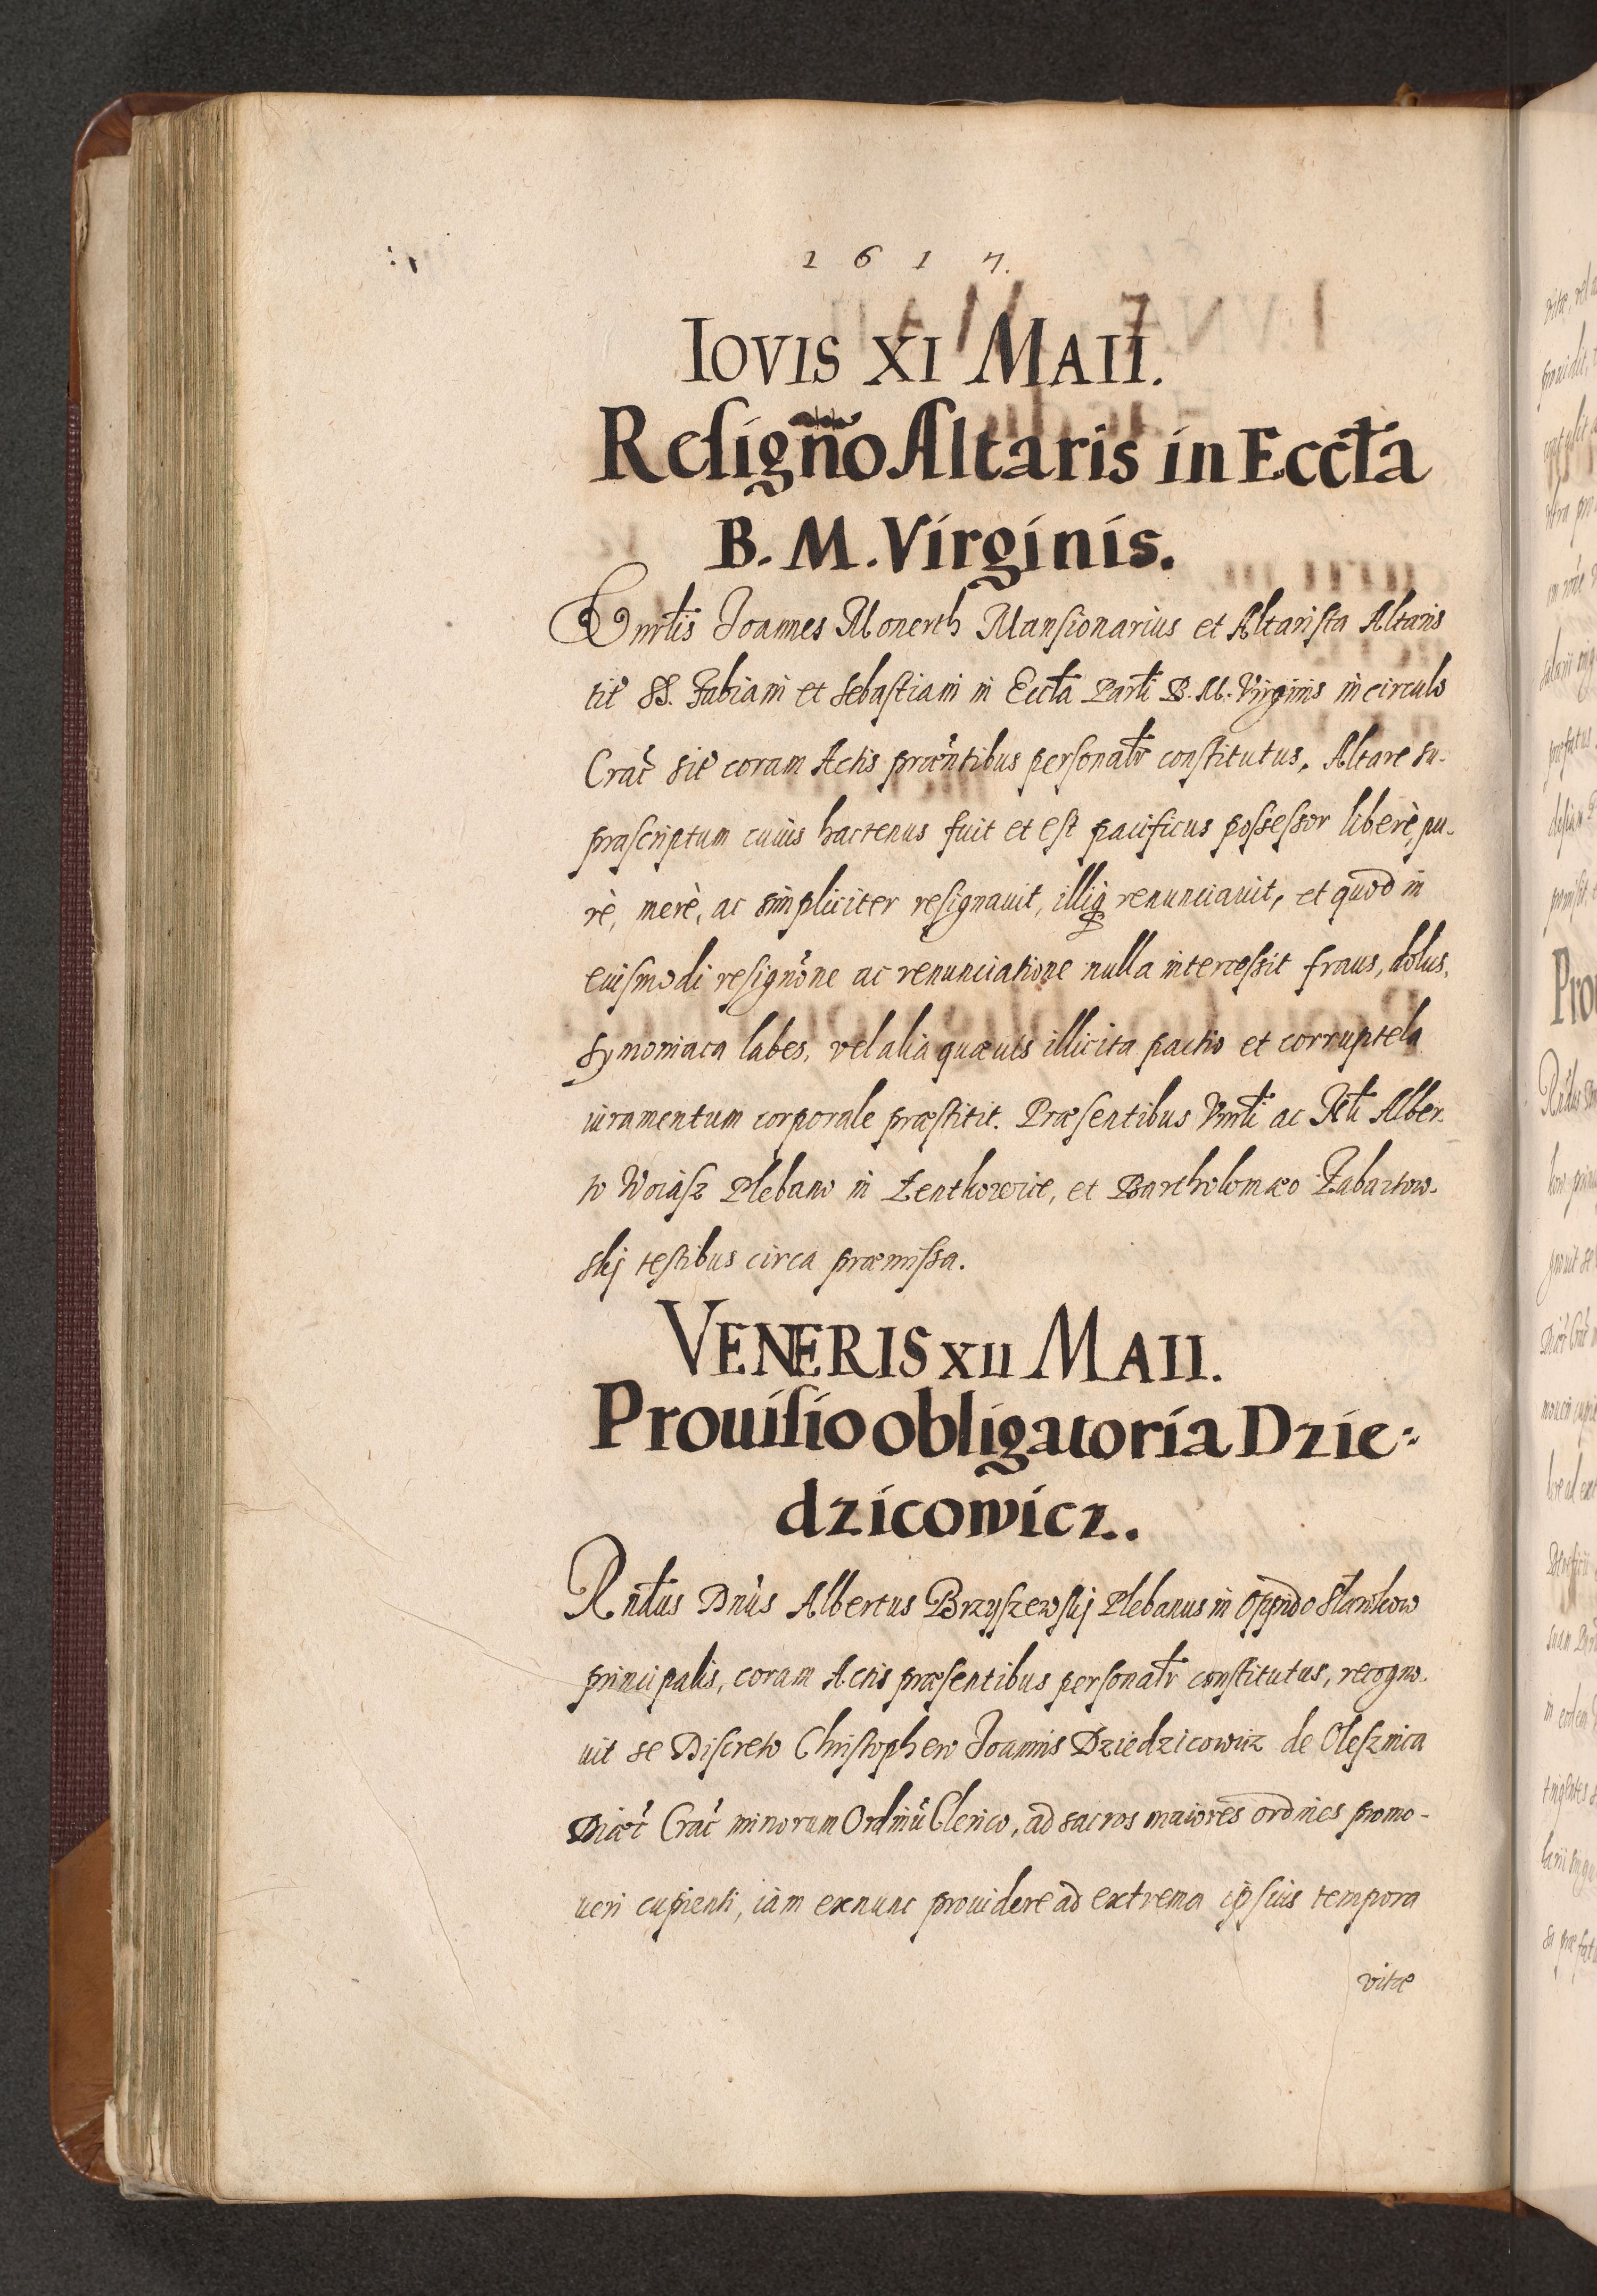 1617.
IOVIS XI MAII.
Resigño Altaris in Eccła
B. M. Virginis.
Vnrłis Joannes Monerth Mansionarius et Altarista Altaris
tit SS. Fabiani et Sebastiani in Eccła Parłi B. M. Virginis in circulo
Crac̃ sit coram Actis præñtibus personałr constitutus, Altare su-
prascriptum cuius hactenus fuit et est pacificus possessor liberè, pu-
rè, merè, ac simpliciter resignauit, illiq; renunciauit, et quod in
euismodi resigñone ac renunciatione nulla intercessit fraus, dolus,
symoniaca labes, vel alia quæuis illicita pactio et corruptela
iuramentum corporale præstitit. Præsentibus Vnrłi ac Alber-
to Woiasz Plebano in Zentkowice, et Bartholomæo Zabartow-
skij testibus circa præmissa.
VENERIS XII MAII.
Prouisio obligatoria Dzie-
dzicowicz.
Rñdus Dñus Albertus Brzyszewskij Plebanus in Oppido Slawkow
principalis, coram Actis præsentibus personałr constitutus, recogno-
uit se Discreto Christophero Joannis Dziedzicowicz de Olesznica
Diæc̃ Crac̃ minorum Ordinũ Clerico, ad sacros maiores ordines promo-
ueri cupienti, iam exnunc prouidere ad extrema ipsius tempora
vitæ